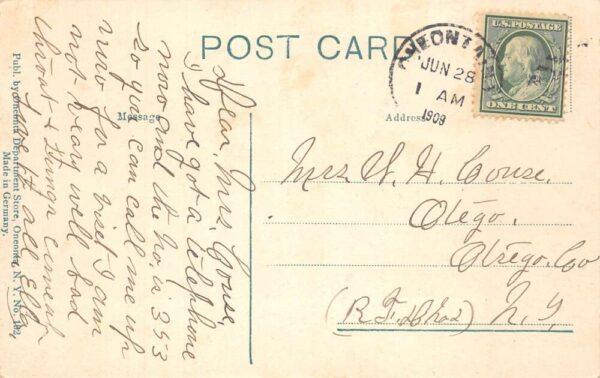 POST CARD
Message
Address
ONEONTA
JUN 28
1 AM
1909
U.S. POSTAGE
ONE CENT
Dear Mrs. Couse,
I have got a telephone
now and the No. is 353
so you can call me up
now for a visit I am
not very well bad
throat & lungs
it all Ella
Mrs W. H. Couse.
Otego.
Otsego. Co
(R.F.D. No 2) N. Y.
Publ. by Oneonta Department Store, Oneonta, N. Y. No. 102.
Made in Germany.